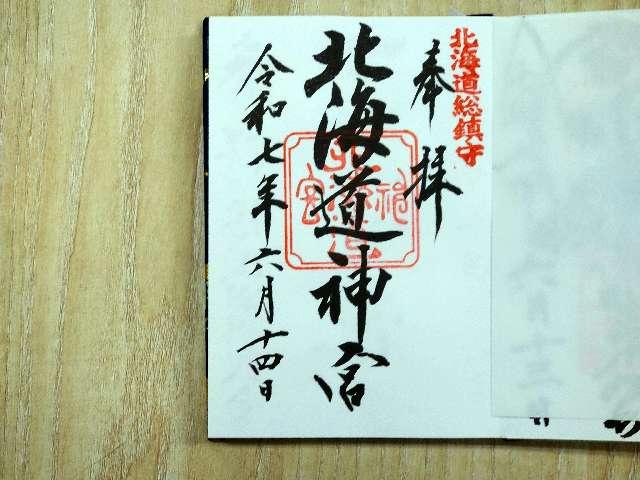 北海道総鎮守
奉拝
北海道神宮
令和七年六月十四日